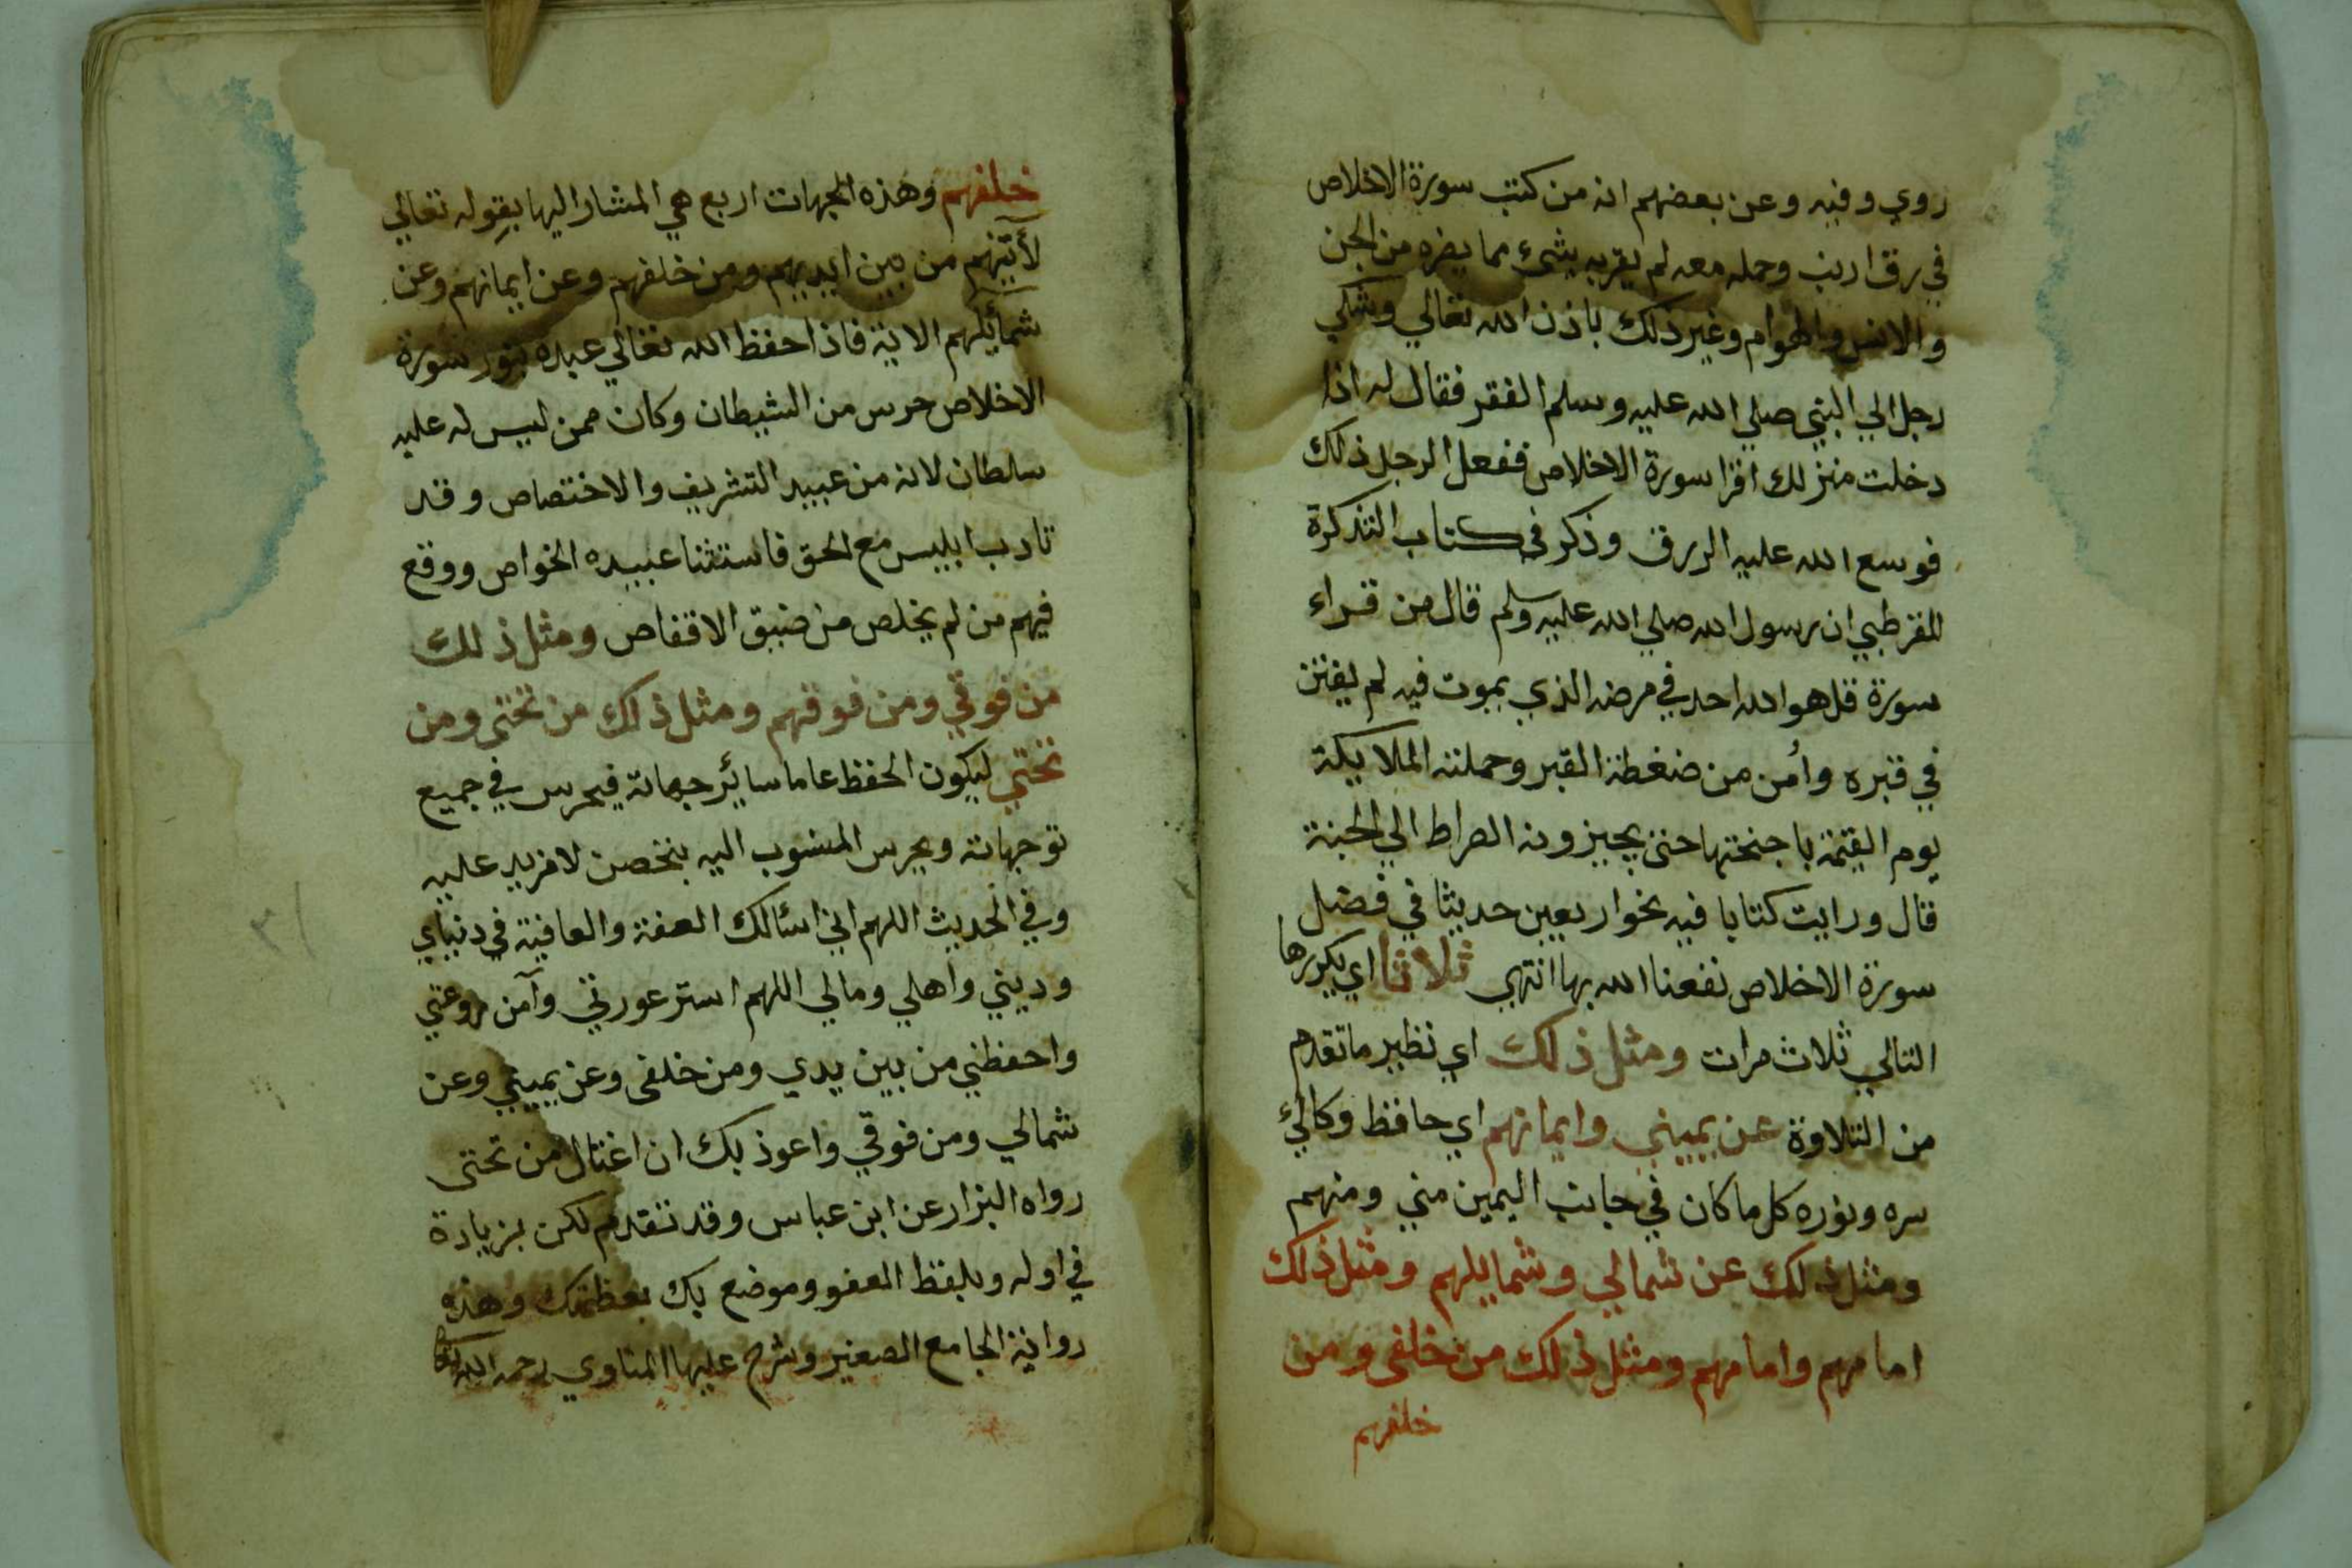 روي وفيه وعن بعضهم انه من كتب سورة الاخلاص
في رق ارنب وحمله معه لم يقربه بشئ مما يضره من الجن
والانس والهوام وغير ذلك باذن الله تعالي وشكي
رجل الي النبي صلي الله عليه وسلم الفقر فقال له اذا
دخلت منزلك اقرا سورة الاخلاص ففعل الرجل ذلك
فوسع الله عليه الرزق وذكر في كتاب التذكرة
للقرطبي ان رسول الله صلي الله عليه وسلم قال من قراء
سورة قل هو الله احد في مرضه الذي يموت فيه لم يفتن
في قبره وأمن من ضغطة القبر وحملته الملايكة
يوم القيمة باجنحتها حتى يجيزونه الصراط الي الجنة
قال ورايت كتابا فيه نحو اربعين حديثا في فضل
سورة الاخلاص نفعنا الله بها انتهي ثلاثا اي يكررها
التالي ثلاث مرات ومثل ذلك اي نظير ما تقدم
من التلاوة عن يميني وايمانهم اي حافظ وكالئ
سره ونوره كل ما كان في جانب اليمين مني ومنهم
ومثل ذلك عن شمالي وشمايلهم ومثل ذلك
امامهم وامامهم ومثل ذلك من خلفى ومن
خلفهم
خلفهم وهذه الجهات اربع هي المشار اليها بقوله تعالي
لأتينهم من بين ايديهم ومن خلفهم وعن ايمانهم وعن
شمائلهم الاية فاذا حفظ الله تعالي عبده بنور سورة
الاخلاص حرس من الشيطان وكان ممن ليس له عليه
سلطان لانه من عبيد التشريف والاختصاص وقد
تادب ابليس مع الحق فاستثنا عبيده الخواص ووقع
فيهم من لم يخلص من ضيق الاقفاص ومثل ذلك
من فوقي ومن فوقهم ومثل ذلك من تحتى ومن
تحتي ليكون الحفظ عاما سائر جهاته فيحرس في جميع
توجهاته ويحرس المنسوب اليه بتحصن لا مزيد عليه
وفي الحديث اللهم اني اسئالك العفة والعافية في دنياي
وديني واهلي ومالي اللهم استر عورتي وآمن روعتي
واحفظني من بين يدي ومن خلفى وعن يميني وعن
شمالي ومن فوقي واعوذ بك ان اغتال من تحتى
رواه البزار عن ابن عباس وقد تقدم لكن بزيادة
في اوله وبلفظ العفو وموضع بك بعظمتك وهذه
رواية الجامع الصغير وشرح عليها المناوي رحمه الله